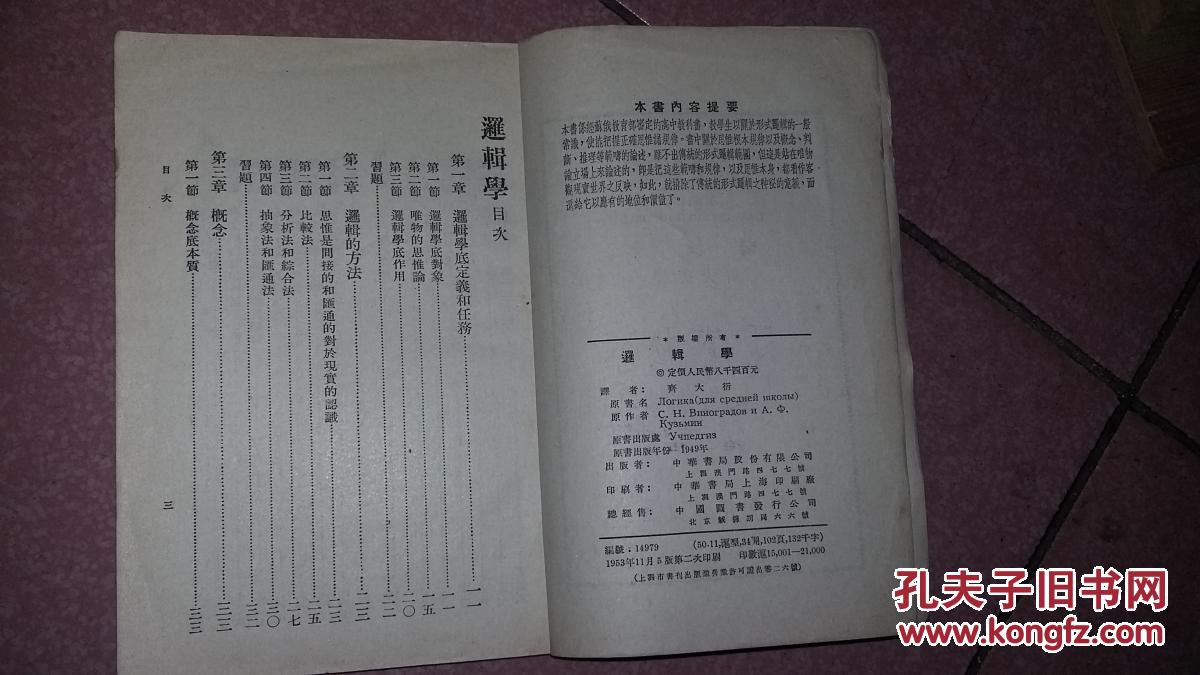 本書內容提要
本書係經蘇俄教育部審定的高中教科書，教學生以關於形式邏輯的一般
常識，使能把握正確思惟諸規律。書中關於思惟根本規律以及概念、判
斷、推理等範疇的論述，雖不出傳統的形式邏輯範圍，但這是站在唯物
論立場上來論述的，即是把這些範疇和規律，以及思惟本身，都看作客
觀現實世界之反映，如此，就清除了傳統的形式邏輯之神秘的意義，而
還給它以應有的地位和價值了。
＊版權所有＊
邏輯學
◎定價人民幣八千四百元
譯者：齊大衍
原書名 Логика(для средней школы)
原作者 С. Н. Виноградов и А. Ф.
Кузьмин
原書出版處 Учпедгиз
原書出版年份 1949年
出版者：中華書局股份有限公司
上海澳門路四七七號
印刷者：中華書局上海印刷廠
上海澳門路四七七號
總經售：中國圖書發行公司
北京 六六號
編號：14979 (50-11,滬型,34開,102頁,132千字)
1953年11月5版第二次印刷 印數滬15,001—21,000
(上海市書刊出版業營業許可證出零二六號)
邏輯學 目次
第一章 邏輯學底定義和任務 一一
第一節 邏輯學底對象 一一
第二節 唯物的思惟論 一五
第三節 邏輯學底作用 二〇
習題 二二
第二章 邏輯的方法 二三
第一節 思惟是間接的和匯通的對於現實的認識 二三
第二節 比較法 二五
第三節 分析法和綜合法 二七
第四節 抽象法和匯通法 三〇
習題 三二
第三章 概念 三三
第一節 概念底本質 三三
目次
三
孔夫子旧书网
www.kongfz.com